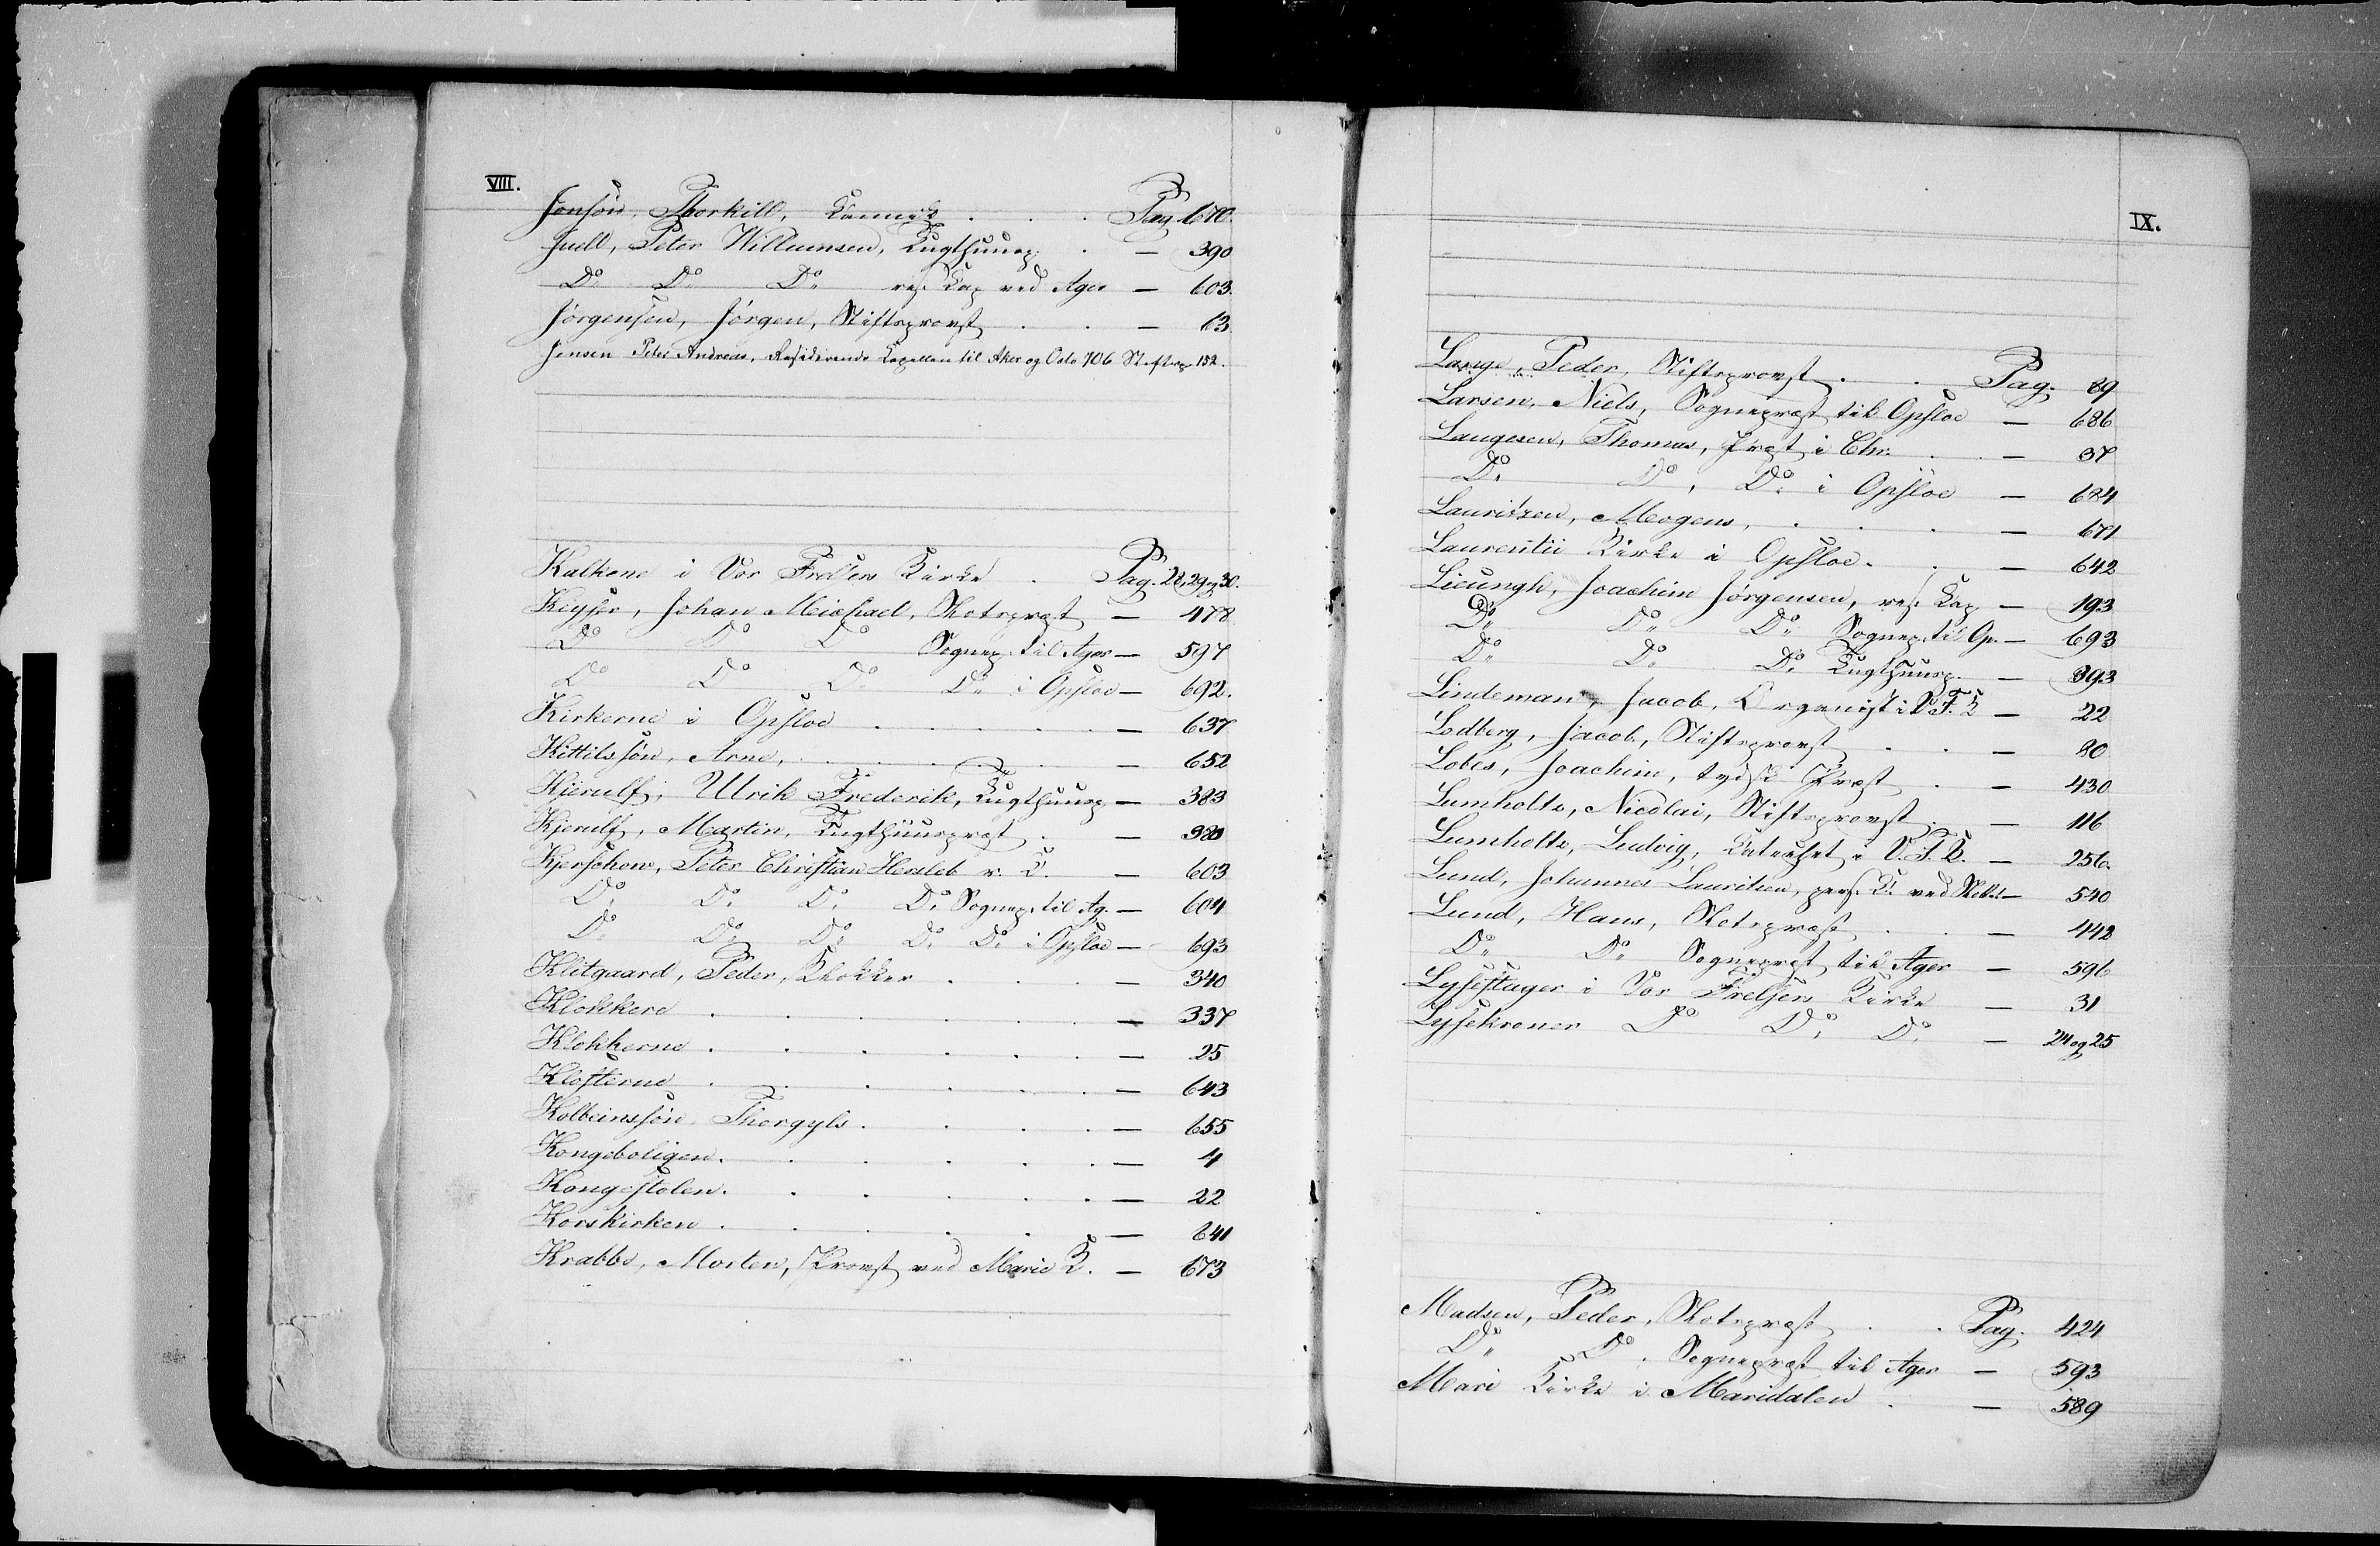 VIII.
Jonsön, Thorkill, Kannik . . . Pag. 670.
Juell, Peter Willumsen, Tugthuusp. . — 390
Do Do Do res. Kap ved Ager — 603.
Jörgensen, Jörgen, Stiftsprovst . . — 63
Jensen Peter Andreas, Residerende Kapellan til Aker og Oslo 706 Stiftsp. 152.
Kalkene i Vor Frelsers Kirke . Pag. 28, 29 og 30.
Keyser, Johan Michael, Slotspræst — 478
Do Do Do Sognep. til Ager — 597
Do Do Do Do i Opsloe — 692.
Kirkerne i Opsloe . . . . . — 637
Kittilssön, Arne, . . . . . — 652
Kjerulf, Ulrik Frederik, Tugthuusp — 383
Kjerulf, Martin, Tugthuuspræst . — 380
Kjerschow, Peter Christian Hersleb r. K. — 603
Do Do Do Do Sognep. til Ag. — 604
Do Do Do Do Do i Opsloe — 693
Klitgaard, Peder, Klokker . . . — 340
Klokkere . . . . . . — 337
Klokkerne . . . . . . — 25
Klosterne . . . . . . — 643
Kolbeinssön, Thorgyls . . . . — 655
Kongeboligen . . . . . . — 4
Kongestolen . . . . . . — 22
Korskirken . . . . . — 641
Krabbe, Morten, Provst ved Marie K. — 673
IX.
Lange, Peder, Stiftsprovst . . Pag. 89
Larsen, Niels, Sognepræst til Opsloe — 686
Laugesen, Thomas, Præst i Chr. . . — 37
Do Do, Do i Opsloe — 684
Lauritzen, Mogens, . . . — 671
Laurentii Kirke i Opsloe . . — 642
Lieungh, Joachim Jörgensen, res. Kap — 193
Do Do Do Sognep. til Op. — 693
Do Do Do Tugthuusp. — 393
Lindeman, Jacob, Organist i V. F. K — 22
Lodberg, Jacob, Stiftsprovst . . — 80
Lobes, Joachim, tydsk Præst . — 430
Lumholtz, Nicolai, Stiftsprovst . — 116
Lumholtz, Ludvig, Katechet i V. F. K. — 256.
Lund, Johannes Lauritzen, pers. K. ved — 540
Lund, Hans, Slotspræst . . — 442
Do Do Sognepræst til Ager — 596
Lysestager i Vor Frelsers Kirke — 31
Lysekroner Do Do Do — 24 og 25
Madsen, Peder, Slotspræst . . Pag. 424
Do Do. Sognepræst til Ager — 593
Mari Kirke i Maridalen . — 589